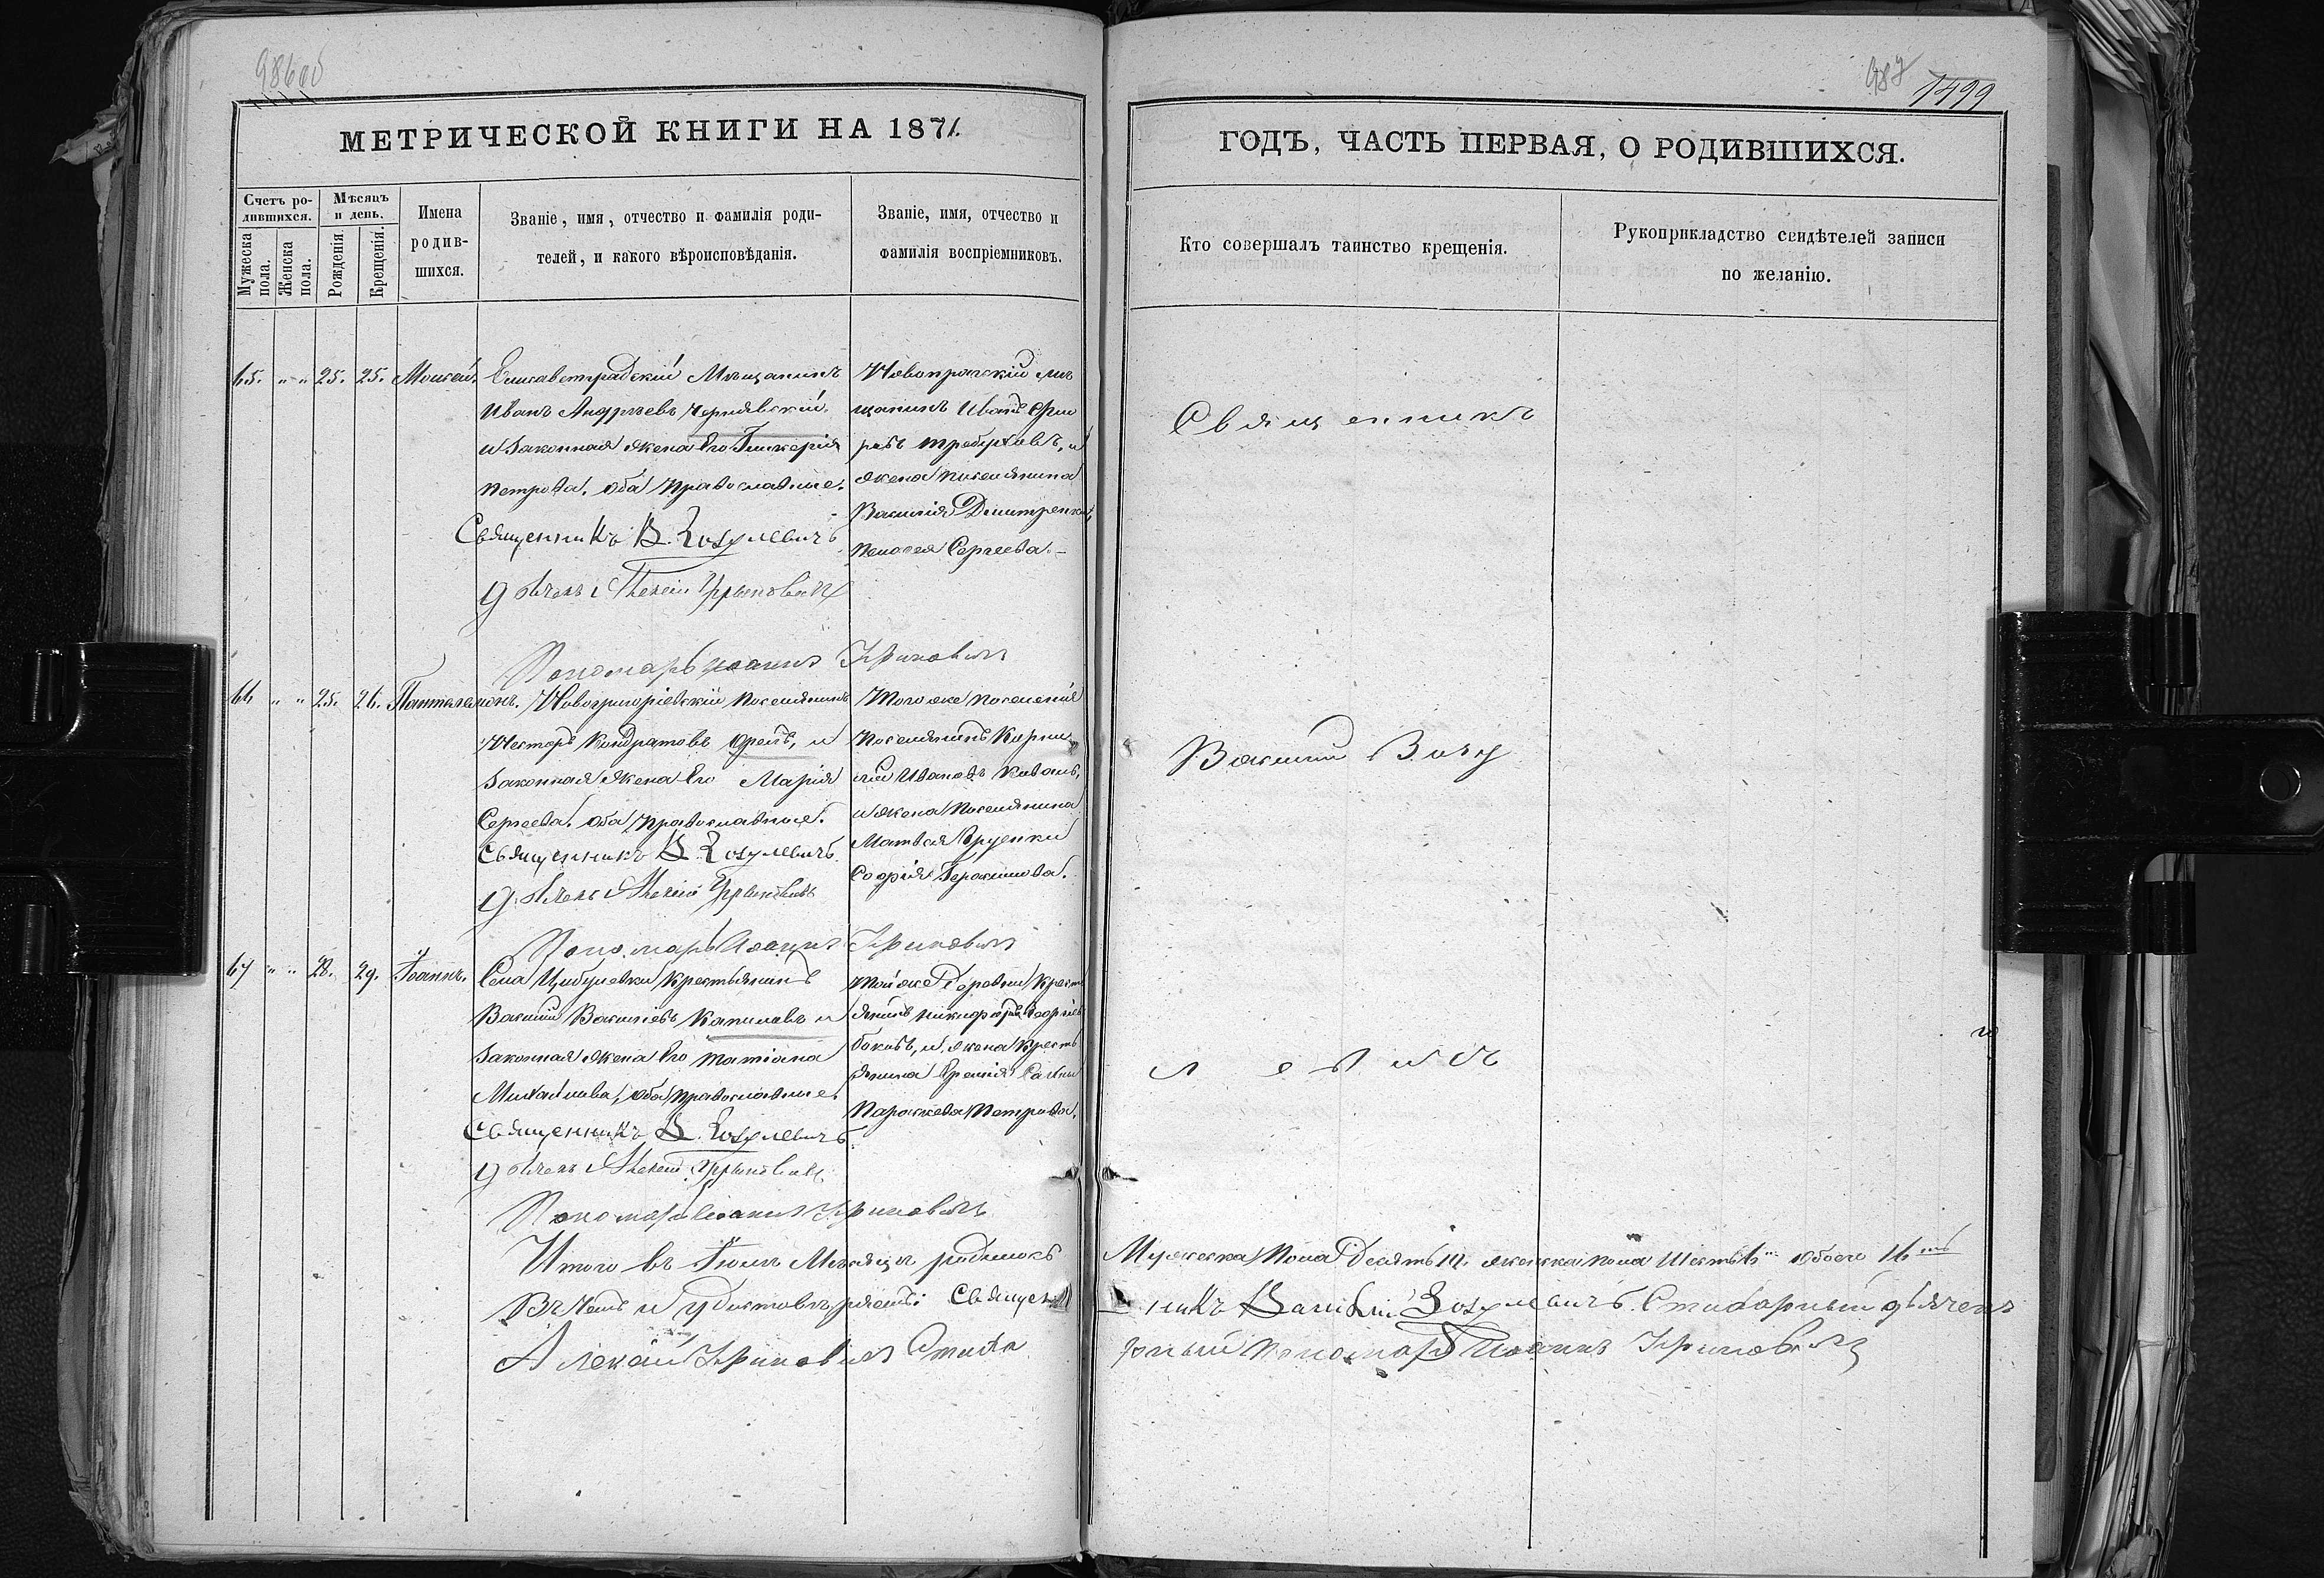 986об
МЕТРИЧЕСКОЙ КНИГИ НА 1871.
Счетъ ро-
дившихся.
Мужеска
пола.
Женска
пола.
Мѣсяцъ
и день.
Рожденія
Крещенія.
Имена
родив-
шихся.
Званіе, имя, отчество и фамилія роди-
телей, и какого вѣроисповѣданія.
Званіе, имя, отчество и
фамилія воспріемниковъ.
65. " " 25. 25. Моисей.
Елисаветградскій Мѣщанинъ
Иванъ Андреевъ Чернявскій
и Законная жена Его Гликерія
Петрова. оба Православные.
Священникъ В. Зозулевичъ
Дьячекъ
Новопражскій мѣ
щанинъ Иванъ
жена поселянина
Василія Дмитренка,
Сергеева. –
Пономарь Иоаннъ
66 " " 25. 26. Пантелеимонъ.
Новогригоріевскій поселянинъ
Несторъ Кондратовъ и
Законная жена Его Марія
Сергеева. Оба Православные.
Священникъ В. Зозулевичъ
Дьячекъ
Того же поселенія
Поселянинъ Корни
лій Ивановъ Коваль,
и жена поселянина
Матвея
Софія Герасимова.
Пономарь Иоаннъ
67 " " 28. 29. Іоаннъ.
Села Цибулевки Крестьянинъ
Василій Василіевъ и
Законная жена Его Татіана
Михайлова, Оба Православные
Священникъ В. Зозулевичъ
Дьячекъ
Той же Деревни Кресть
янинъ Никифоръ
и жена Кресть
янина
Параскева Петрова.
Пономарь Иоаннъ
Итого въ Іюлѣ Мѣсяцѣ родилось
Священ
Алексѣй Стиха
987
1499
ГОДЪ, ЧАСТЬ ПЕРВАЯ, О РОДИВШИХСЯ.
Кто совершалъ таинство крещенія.
Рукоприкладство свидѣтелей записи
по желанію.
Священникъ
Василій Зозу
левичъ
Мужеска Пола Десять 10. женска пола Шесть 6 обоего 16
никъ Василій Зозулевичъ. Стихарный дьячекъ
рный пономарь Иоаннъ